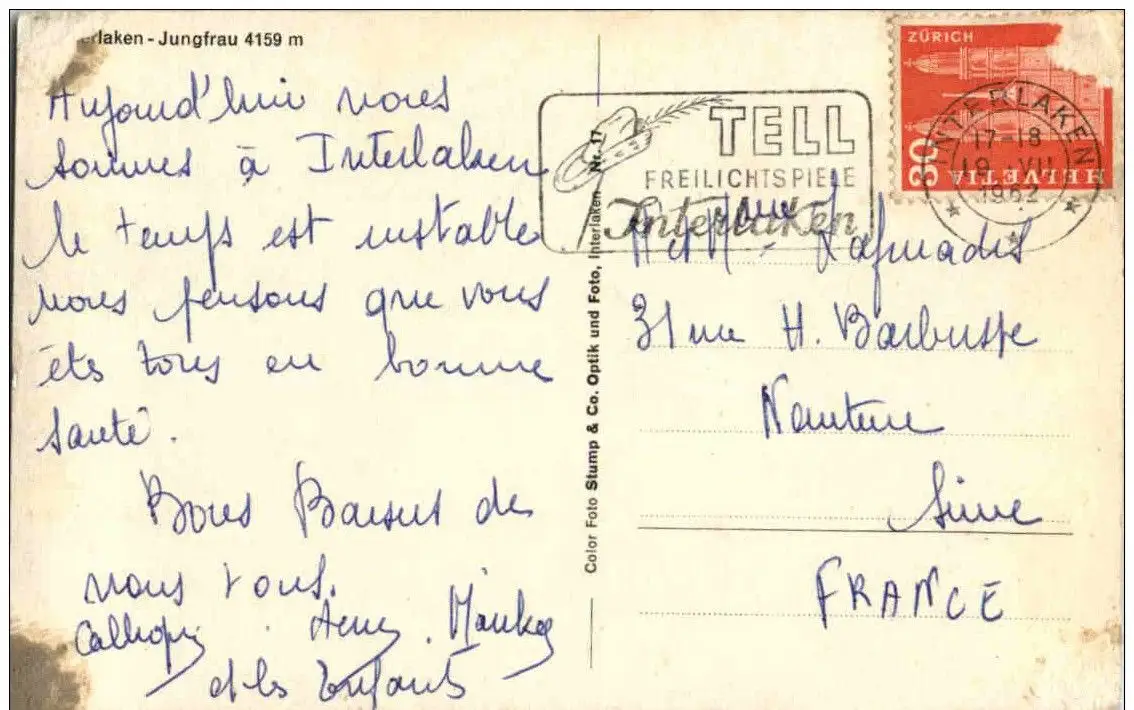 erlaken - Jungfrau 4159 m
Aujourd'hui nous
sommes à Interlaken
le temps est instable
nous pensons que vous
êtes tous en bonne
santé.
Bons Baisers de
nous tous.
et les Enfants
Color Foto Stump & Co. Optik und Foto, Interlaken Nr. 17
TELL
FREILICHTSPIELE
Interlaken
ZÜRICH
30
HELVETIA
INTERLAKEN
17-18
19. VII
1962
31 rue H. Barbusse
Nanterre
Seine
FRANCE